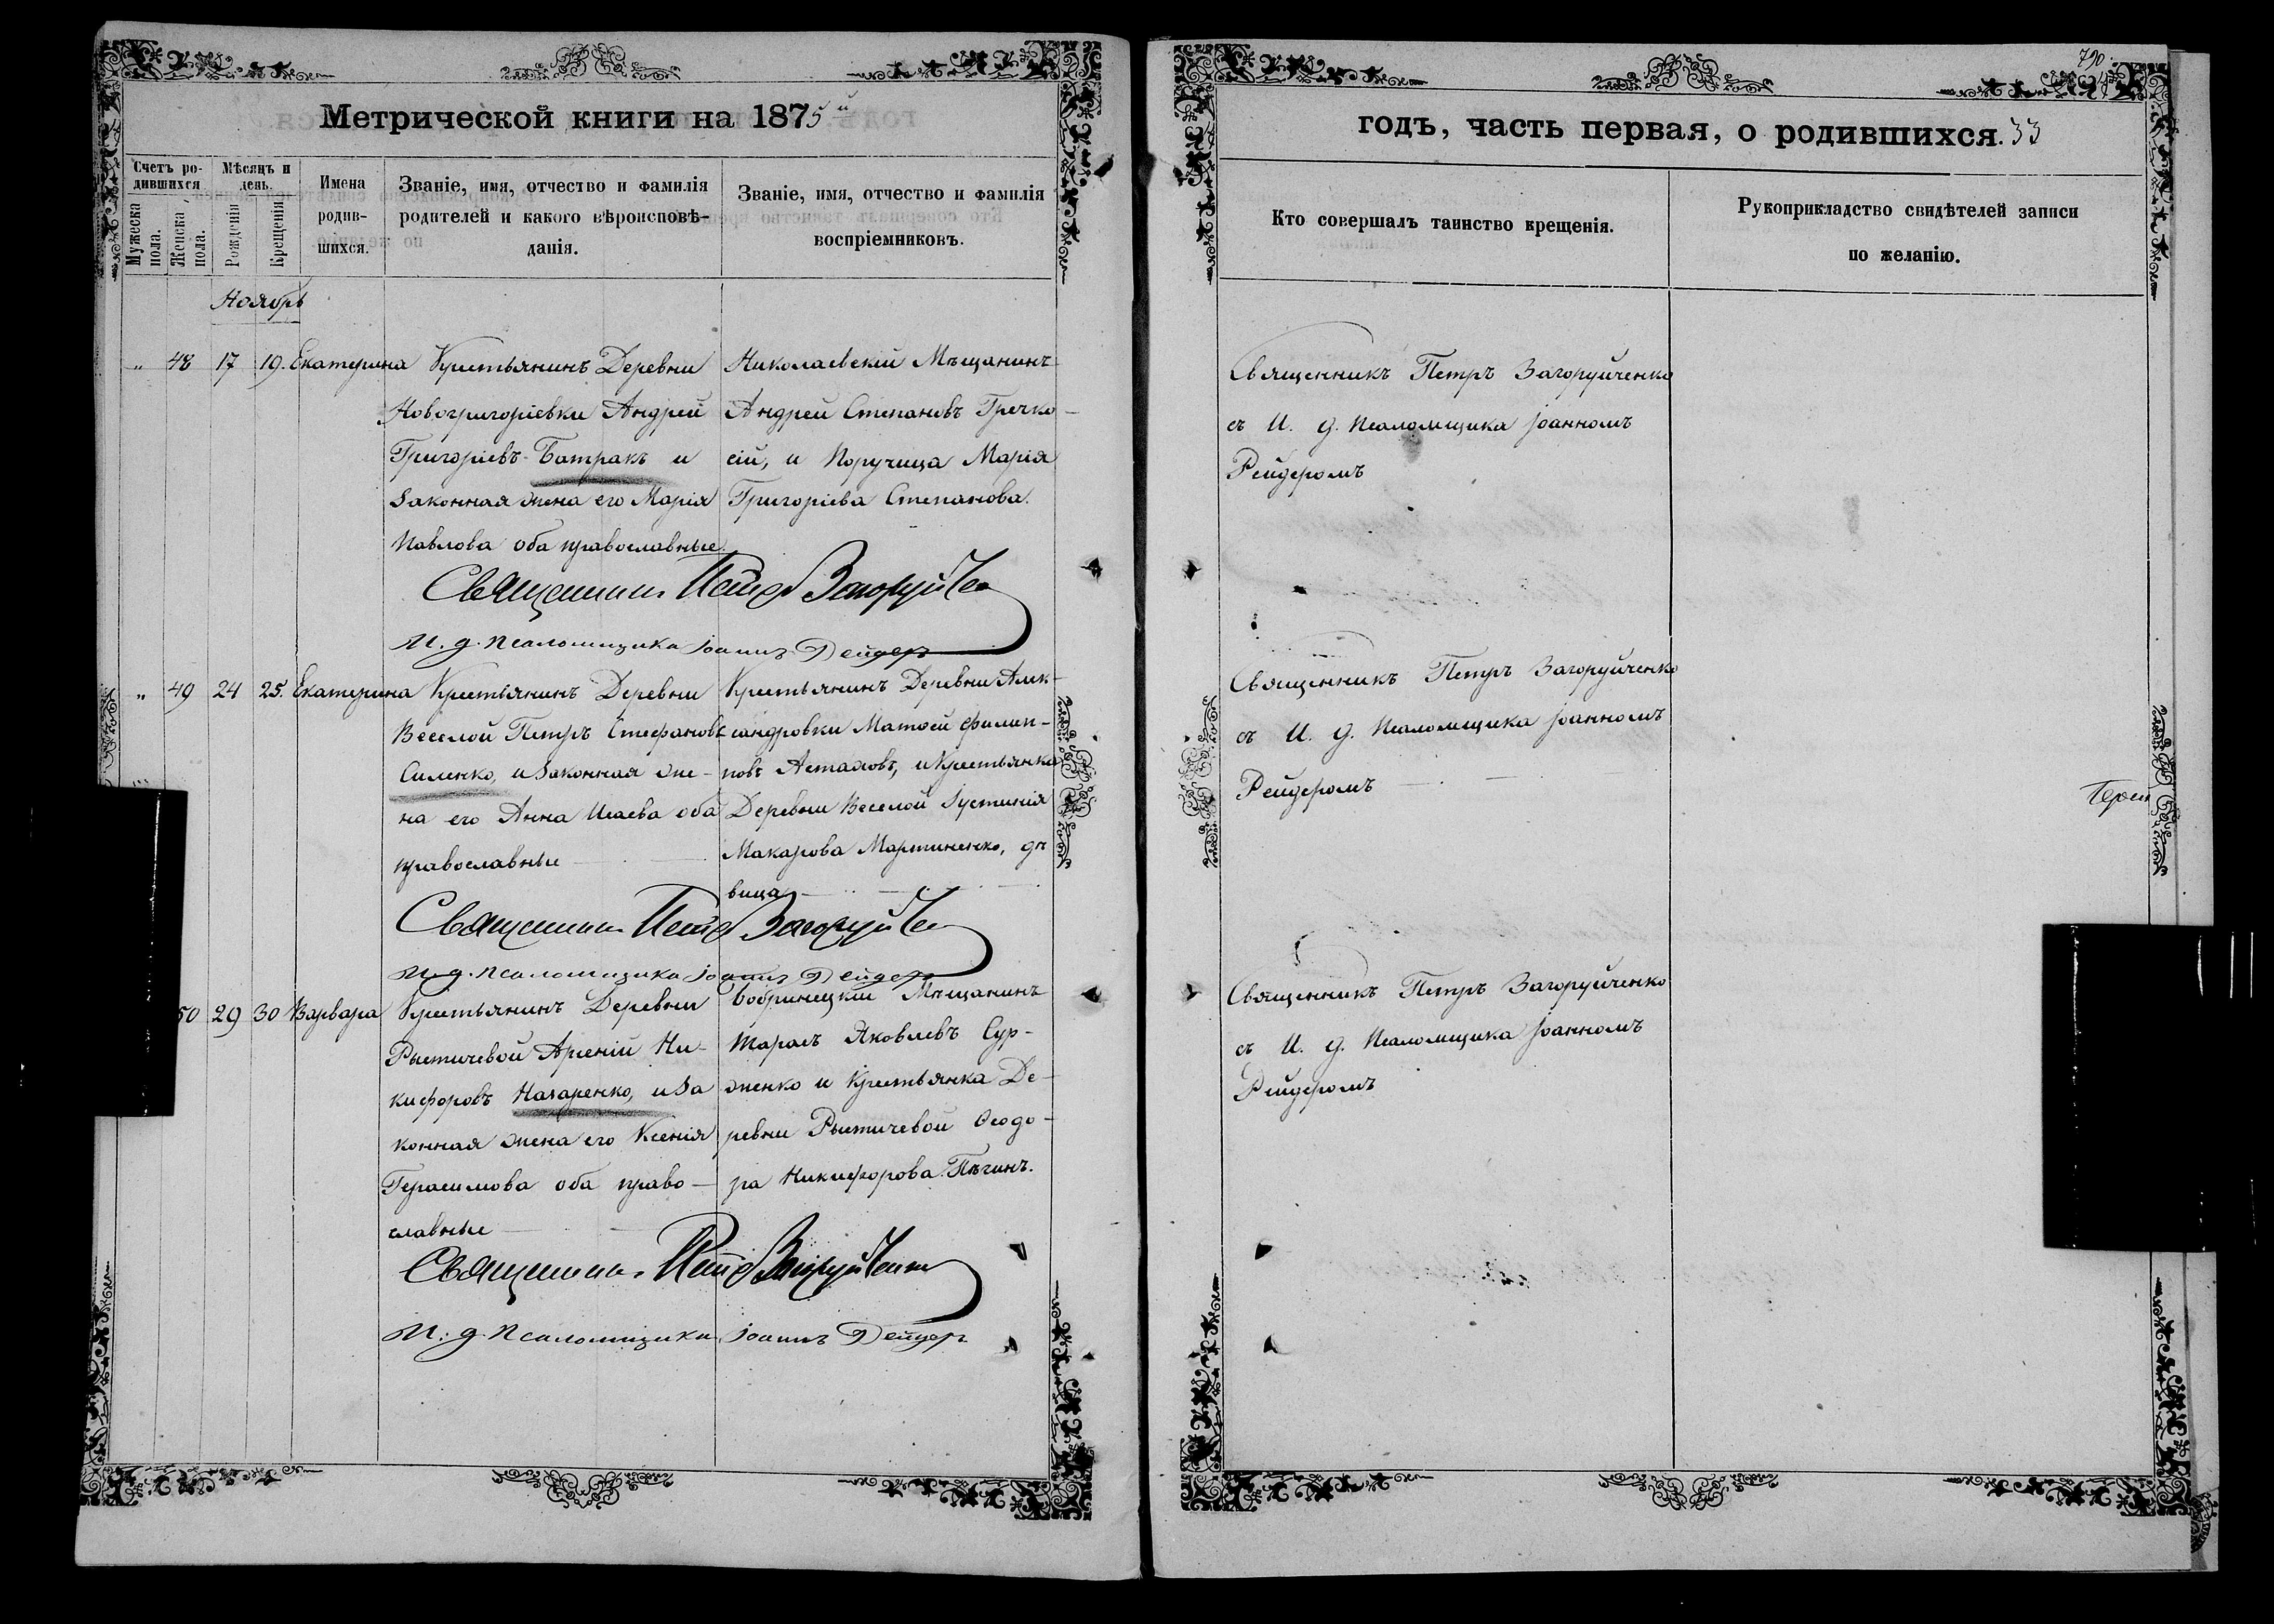 Метрической книги на 1875й
Счетъ родившихся
Мужеска пола.
Женска пола.
Мѣсяцъ и день.
Рожденія
Крещенія
Имена родив-
шихся.
Званіе, имя, отчество и фамилія
родителей и какого вѣроисповѣ-
данія.
Званіе, имя, отчество и фамилія
воспріемниковъ.
Ноябрь
" 48 17 19. Екатерина
Крестьянинъ Деревни
Новогригоріевки Андрей
Григоріевъ Батракъ и
Законная жена его Марія
Павлова оба православные.
Николаевскій Мѣщанинъ
Андрей Степановъ Гречко-
сій, и Поручица Марія
Григоріева Степанова.
Священникъ Петръ Загоруйченко
И. д. Псаломщика Іоаннъ Рейдеръ
" 49 24 25. Екатерина
Крестьянинъ Деревни
Веселой Петръ Стефановъ
Силенко, и Законная же-
на его Анна Исаева оба
православные
Крестьянинъ Деревни Алек-
сандровки Матѳей Филип-
повъ Астаховъ, и Крестьянка
Деревни Веселой Іустинія
Макарова Мартиненко, дѣ
вица
Священникъ Петръ Загоруйченко
И. д. Псаломщика Іоаннъ Рейдеръ
50 29 30 Варвара
Крестьянинъ Деревни
Арсеній Ни-
кифоровъ Назаренко, и За
конная жена его Ксенія
Герасимова оба право-
славные
Бобринецкій Мѣщанинъ
Тарасъ Яковлевъ Сур-
женко и Крестьянка Де-
ревни Ѳеодо-
ра Никифорова
Священникъ Петръ Загоруйченко
И. д. Псаломщика Іоаннъ Рейдеръ
790
годъ, часть первая, о родившихся. 33
Кто совершалъ таинство крещенія.
Рукоприкладство свидѣтелей записи
по желанію.
Священникъ Петръ Загоруйченко
съ И. д. Псаломщика Іоанномъ
Рейдеромъ
Священникъ Петръ Загоруйченко
съ И. д. Псаломщика Іоанномъ
Рейдеромъ
Священникъ Петръ Загоруйченко
съ И. д. Псаломщика Іоанномъ
Рейдеромъ